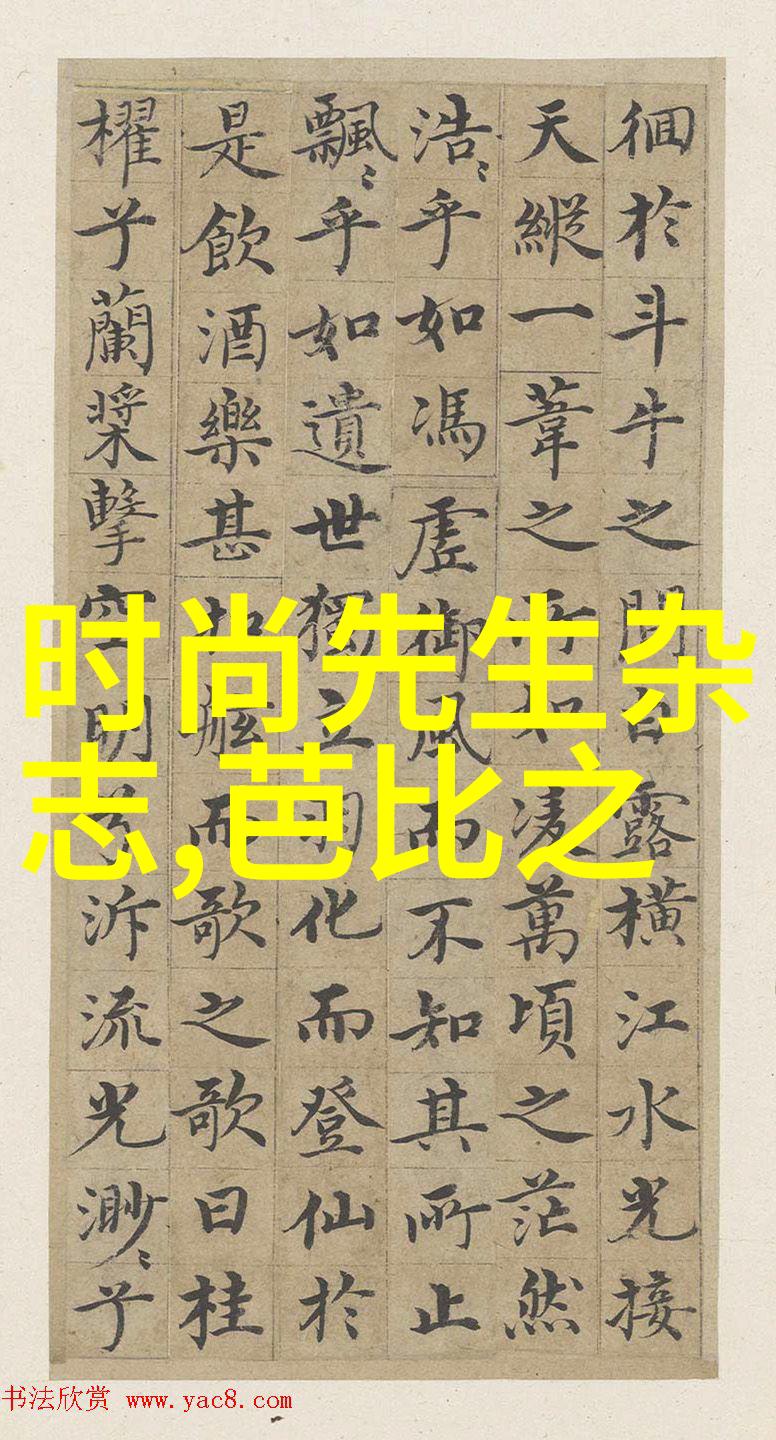 徊於斗牛之間白露橫江水光接
天縱一葦之所如淩萬頃之茫然
浩〻乎如馮虛御風而不知其所止
飄〻乎如遺世獨立羽化而登仙於
是飲酒樂甚扣舷而歌之歌曰桂
櫂兮蘭槳擊空明兮泝流光渺〻兮
时尚先生杂
志,芭比之
书法欣赏 www.yac8.com